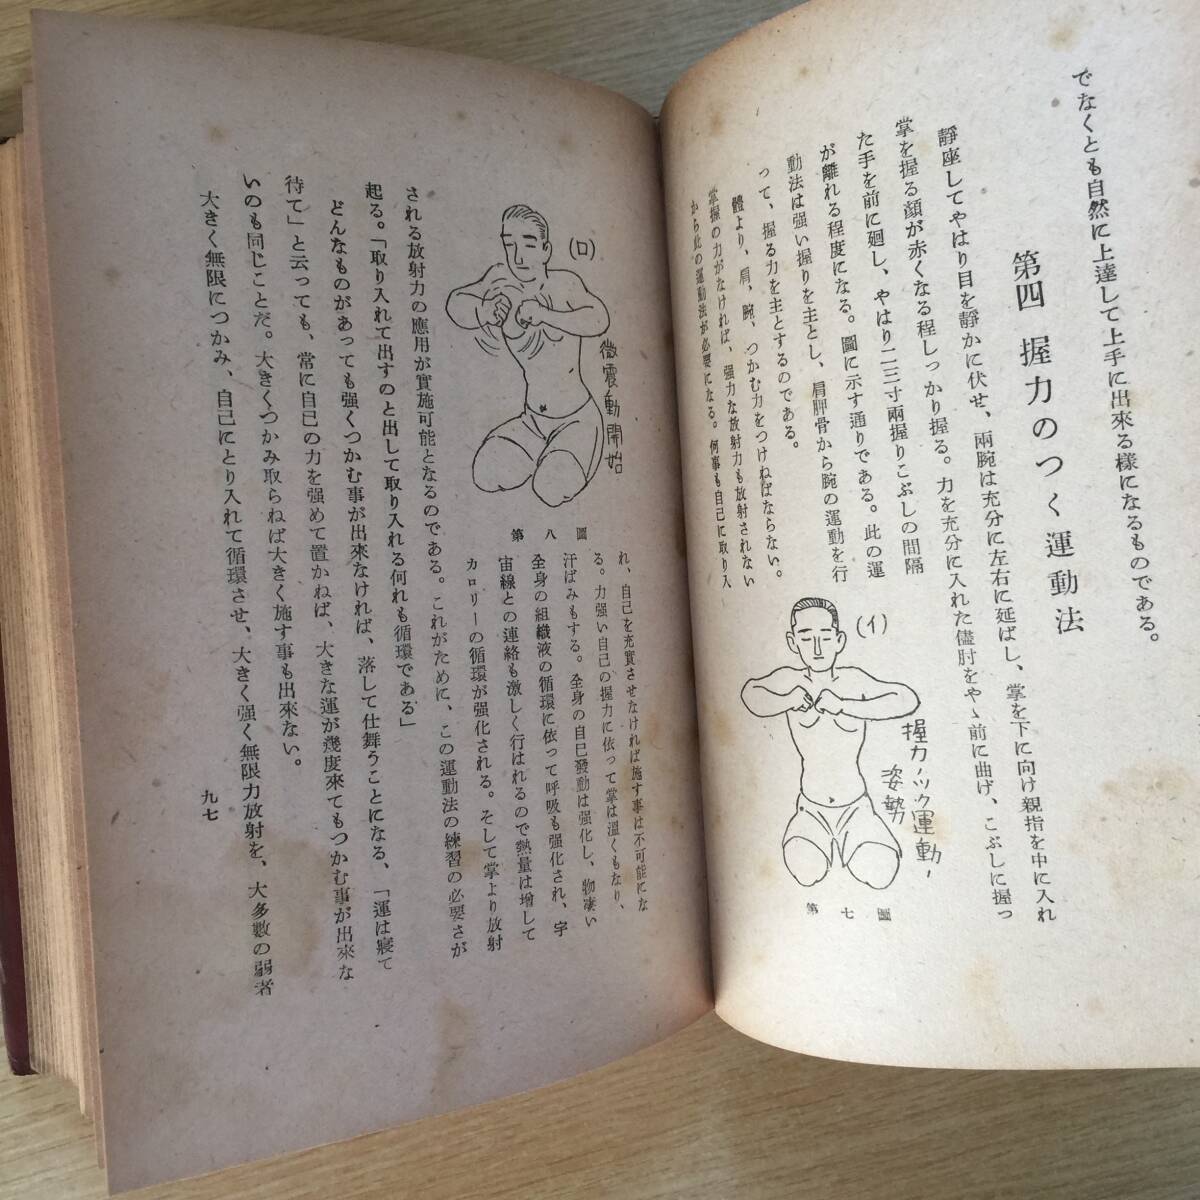 でなくとも自然に上達して上手に出來る樣になるものである。
第四 握力のつく運動法
靜座してやはり目を靜かに伏せ、兩腕は充分に左右に延ばし、掌を下に向け親指を中に入れ
掌を握る顏が赤くなる程しっかり握る。力を充分に入れた儘肘をやゝ前に曲げ、こぶしに握っ
た手を前に廻し、やはり二三寸兩握りこぶしの間隔
が離れる程度になる。圖に示す通りである。此の運
動法は强い握りを主とし、肩胛骨から腕の運動を行
って、握る力を主とするのである。
體より、肩、腕、つかむ力をつけねばならない。
掌握の力がなければ、强力な放射力も放射されない
から此の運動法が必要になる。何事も自己に取り入
(イ)
握力ノツク運動ノ
姿勢
第七圖
れ、自己を充實させなければ施す事は不可能にな
る。力强い自己の握力に依って掌は溫くもなり、
汗ばみもする。全身の自已發動は强化し、物凄い
全身の組織液の循環に依って呼吸も强化され、宇
宙線との連絡も激しく行はれるので熱量は增して
カロリーの循環が强化される。そして掌より放射
(ロ)
微震動開始
第八圖
される放射力の應用が實施可能となるのである。これがために、この運動法の練習の必要さが
起る。「取り入れて出すのと出して取り入れる何れも循環である」
どんなものがあっても强くつかむ事が出來なければ、落して仕舞うことになる、「運は寢て
待て」と云っても、常に自己の力を强めて置かねば、大きな運が幾度來てもつかむ事が出來な
いのも同じことだ。大きくつかみ取らねば大きく施す事も出來ない。
大きく無限につかみ、自己にとり入れて循環させ、大きく强く無限力放射を、大多數の弱者
九七